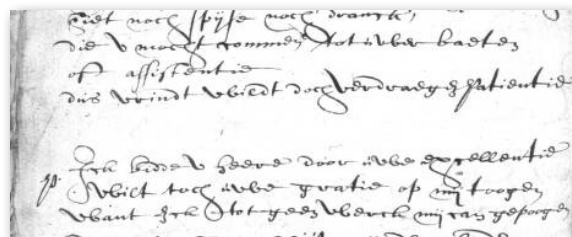 niet noch spijse noch dranck,
die v mocht commen tot uwer baeten
oft assistentie
dus vrindt wildt doch verdraegen patientie
Ick bidde v heere door uwe excellentie
30. wilt toch uwe gratie op mij toogen
want Ick tot geen werck mij can gepoogen